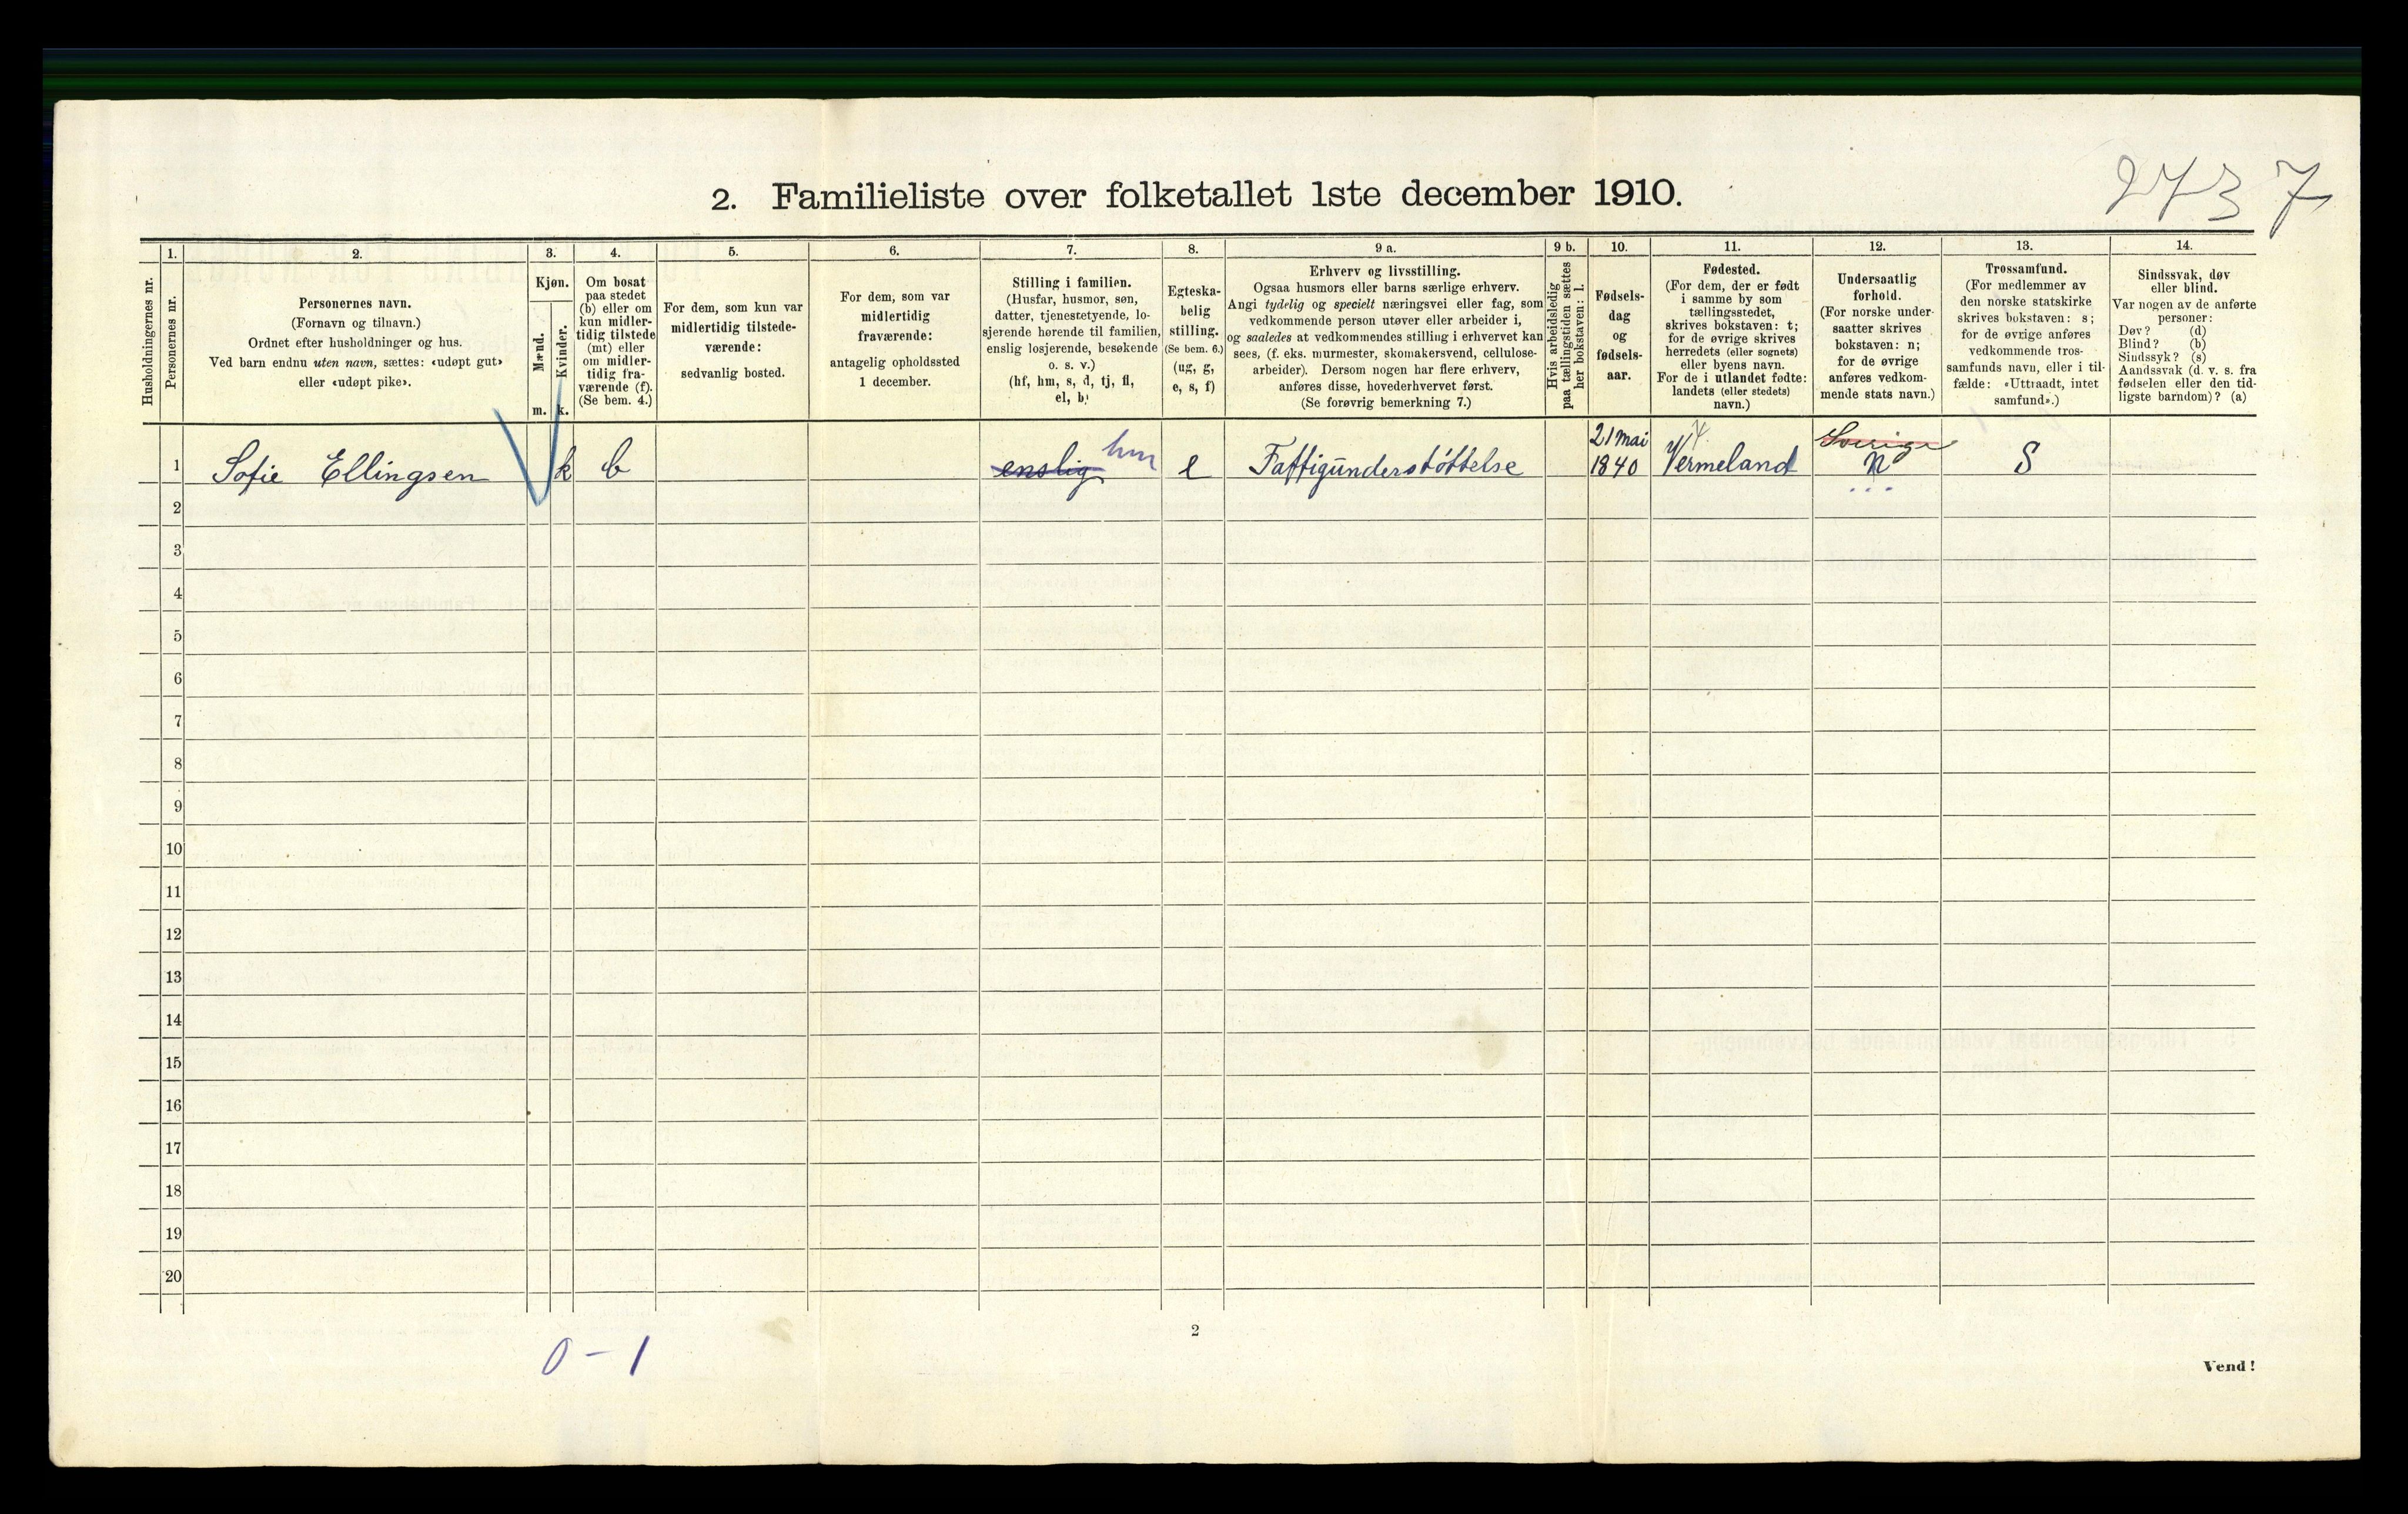 2737
2. Familieliste over folketallet 1ste december 1910.
Husholdningernes nr.
1.
Personernes nr.
2.
Personernes navn.
(Fornavn og tilnavn.)
Ordnet efter husholdninger og hus.
Ved barn endnu uten navn, sættes: «udøpt gut»
eller «udøpt pike».
3.
Kjøn.
Mænd.
m.
Kvinder.
k.
4.
Om bosat
paa stedet
(b) eller om
kun midler-
tidig tilstede
(mt) eller
om midler-
tidig fra-
værende (f).
(Se bem. 4.)
5.
For dem, som kun var
midlertidig tilstede-
værende:
sedvanlig bosted.
6.
For dem, som var
midlertidig
fraværende:
antagelig opholdssted
1 december.
7.
Stilling i familien.
(Husfar, husmor, søn,
datter, tjenestetyende, lo-
sjerende hørende til familien,
enslig losjerende, besøkende
o. s. v.)
(hf, hm, s, d, tj, fl,
el, b)
8.
Egteska-
belig
stilling.
(Se bem. 6.)
(ug, g,
e, s, f)
9 a.
Erhverv og livsstilling.
Ogsaa husmors eller barns særlige erhverv.
Angi tydelig og specielt næringsvei eller fag, som
vedkommende person utøver eller arbeider i,
og saaledes at vedkommendes stilling i erhvervet kan
sees, (f. eks. murmester, skomakersvend, cellulose-
arbeider). Dersom nogen har flere erhverv,
anføres disse, hovederhvervet først.
(Se forøvrig bemerkning 7.)
9 b.
Hvis arbeidsledig
paa tællingstiden sættes
her bokstaven: l.
10.
Fødsels-
dag
og
fødsels-
aar.
11.
Fødested.
(For dem, der er født
i samme by som
tællingsstedet,
skrives bokstaven: t;
for de øvrige skrives
herredets (eller sognets)
eller byens navn.
For de i utlandet fødte:
landets (eller stedets)
navn.)
12.
Undersaatlig
forhold.
(For norske under-
saatter skrives
bokstaven: n;
for de øvrige
anføres vedkom-
mende stats navn.)
13.
Trossamfund.
(For medlemmer av
den norske statskirke
skrives bokstaven: s;
for de øvrige anføres
vedkommende tros-
samfunds navn, eller i til-
fælde: «Uttraadt, intet
samfund».)
14.
Sindssvak, døv
eller blind.
Var nogen av de anførte
personer:
Døv? (d)
Blind? (b)
Sindssyk? (s)
Aandssvak (d. v. s. fra
fødselen eller den tid-
ligste barndom)? (a)
1 Sofie Ellingsen k b enslig hm e Fattigunderstøttelse 21 mai 1840 Vermeland Sverige n S
2
3
4
5
6
7
8
9
10
11
12
13
14
15
16
17
18
19
20
0 - 1
2
Vend!